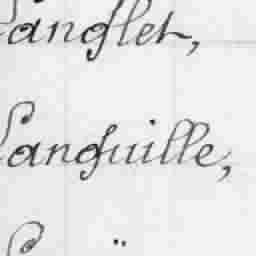 Langlet,
Languille,